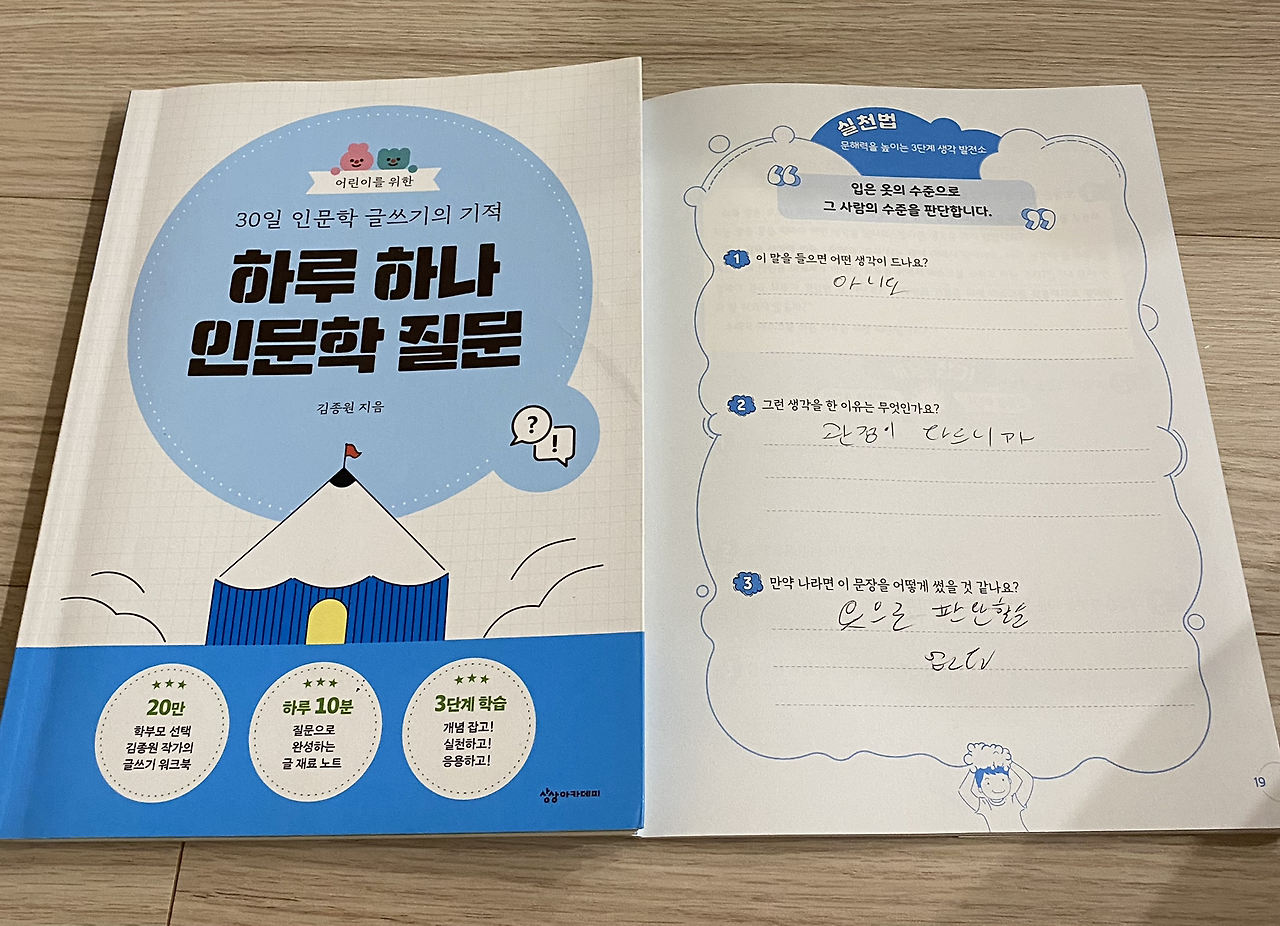 어린이를 위한
30일 인문학 글쓰기의 기적
하루 하나
인문학 질문
김종원 지음
?
!
★★★
20만
학부모 선택
김종원 작가의
글쓰기 워크북
★★★
하루 10분
질문으로
완성하는
글 재료 노트
★★★
3단계 학습
개념 잡고!
실천하고!
응용하고!
상상아카데미
실천법
문해력을 높이는 3단계 생각 발전소
입은 옷의 수준으로
그 사람의 수준을 판단합니다.
1 이 말을 들으면 어떤 생각이 드나요?
아니다
2 그런 생각을 한 이유는 무엇인가요?
관점이 다르니까
3 만약 나라면 이 문장을 어떻게 썼을 것 같나요?
옷으로 판단할 수
없다
19